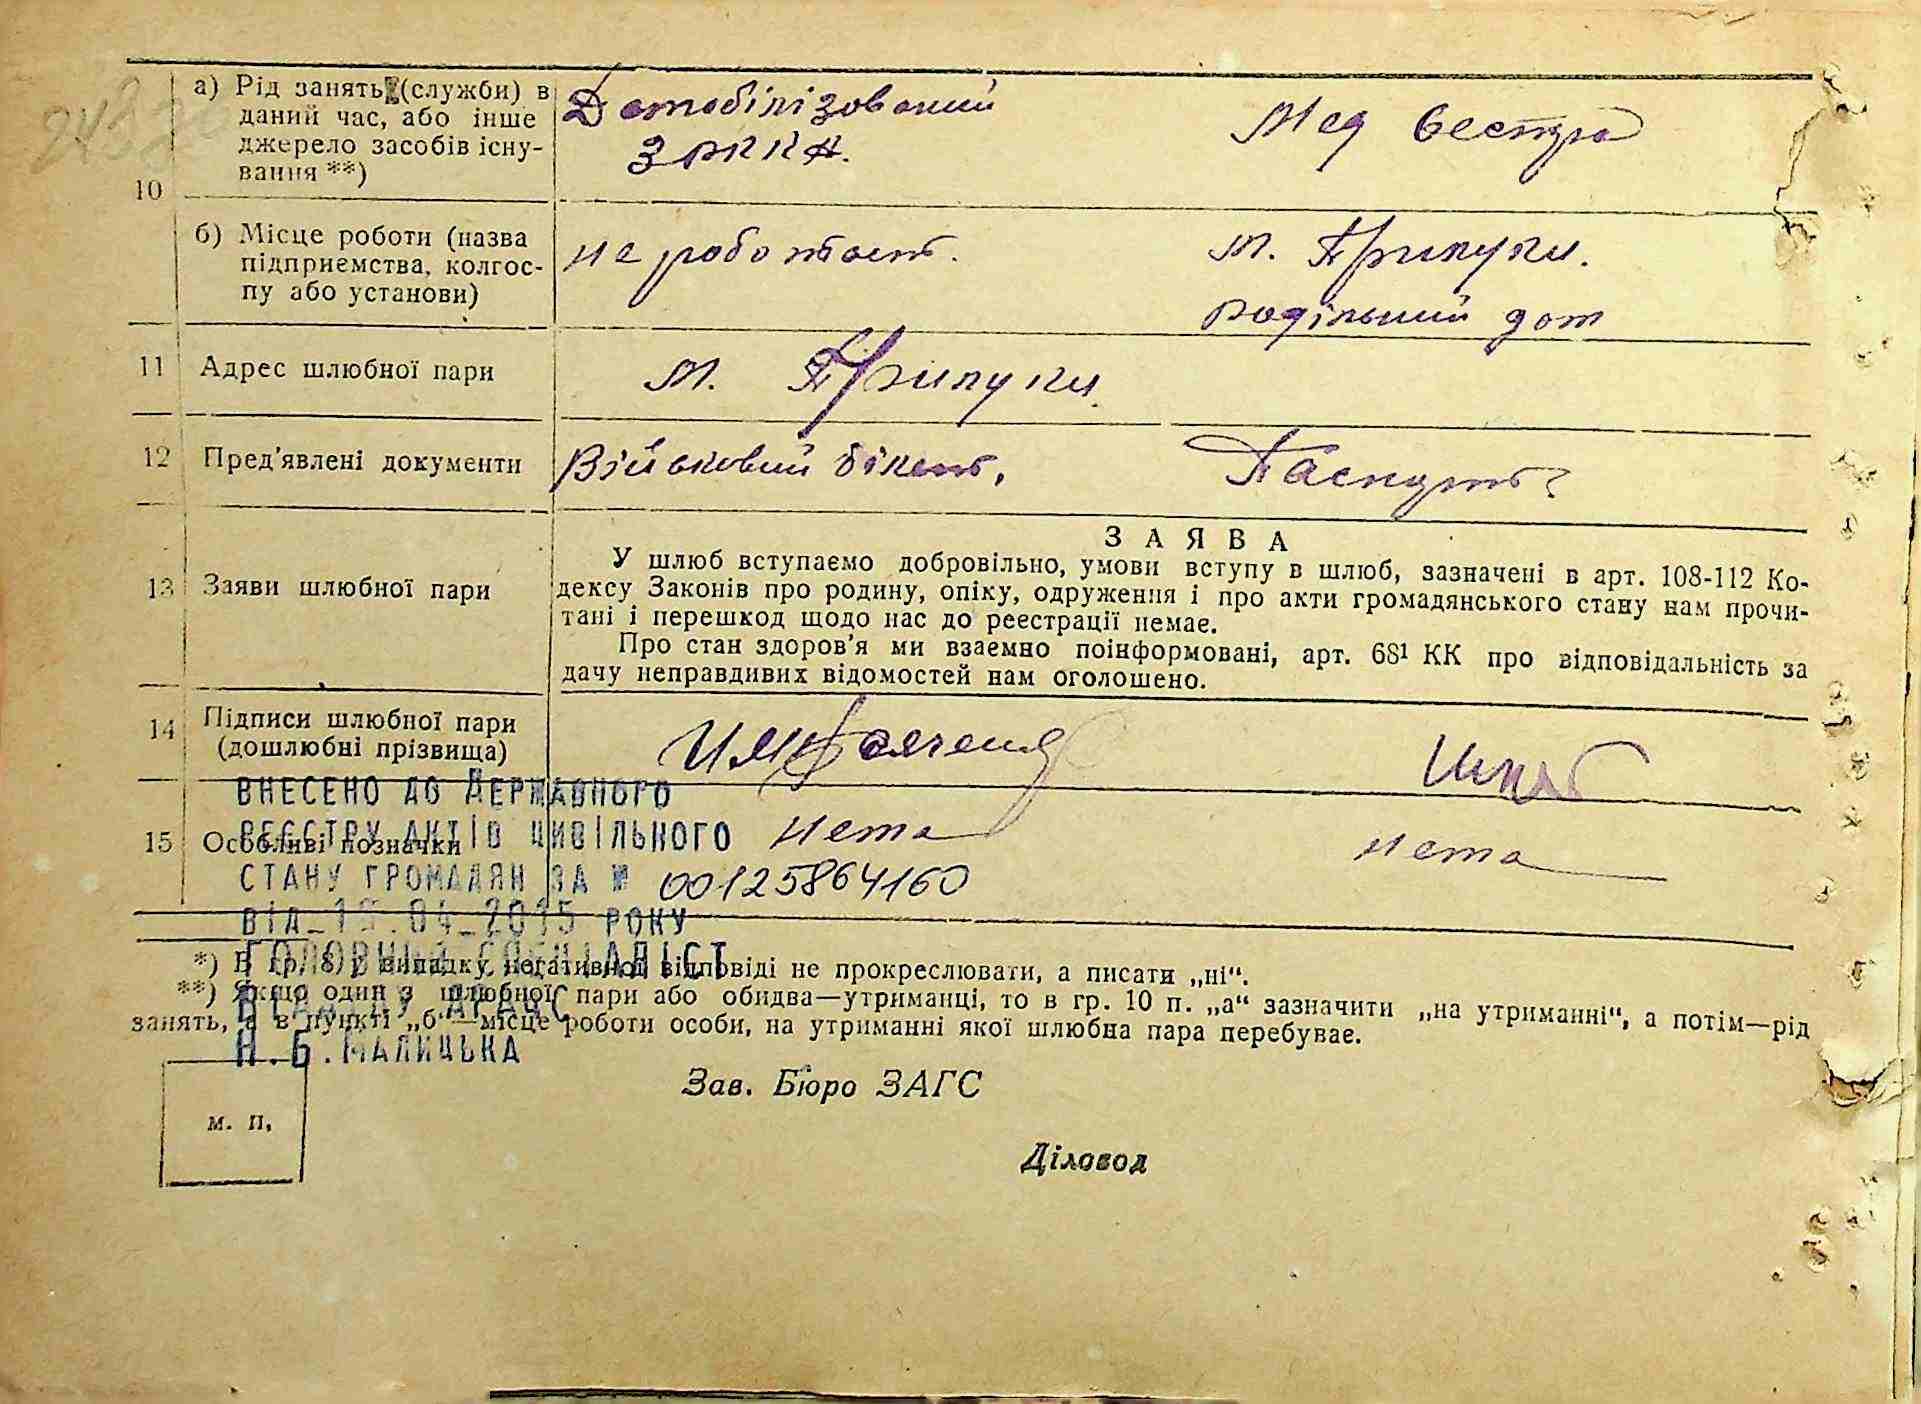 а) Рід занять (служби) в
даний час, або інше
джерело засобів існу-
вання **)
Демобілізований
З РККА.
Мед сестра
10
б) Місце роботи (назва
підприємства, колгос-
пу або установи)
не работает.
м. Прилуки.
родільний дом
11 Адрес шлюбної пари
м. Прилуки.
12 Пред'явлені документи
Військовий білет,
Паспорт
13 Заяви шлюбної пари
ЗАЯВА
У шлюб вступаємо добровільно, умови вступу в шлюб, зазначені в арт. 108-112 Ко-
дексу Законів про родину, опіку, одруження і про акти громадянського стану нам прочи-
тані і перешкод щодо нас до реєстрації немає.
Про стан здоров'я ми взаємно поінформовані, арт. 68¹ КК про відповідальність за
дачу неправдивих відомостей нам оголошено.
14 Підписи шлюбної пари
(дошлюбні прізвища)
15 Особливі позначки
нема
нема
ВНЕСЕНО ДО ДЕРЖАВНОГО
РЕЄСТРУ АКТІВ ЦИВІЛЬНОГО
СТАНУ ГРОМАДЯН ЗА № 00125864160
ВІД 15.04.2015 РОКУ
ГОЛОВНИЙ СПЕЦІАЛІСТ
ВІДДІЛУ ДРАЦС
Н.Б.МАЛИЦЬКА
*) В гр. 8 у випадку негативної відповіді не прокреслювати, а писати „ні“.
**) Якщо один з шлюбної пари або обидва—утриманці, то в гр. 10 п. „а“ зазначити „на утриманні“, а потім—рід
занять, а в пункті „б“—місце роботи особи, на утриманні якої шлюбна пара перебуває.
Зав. Бюро ЗАГС
м. п.
Діловод